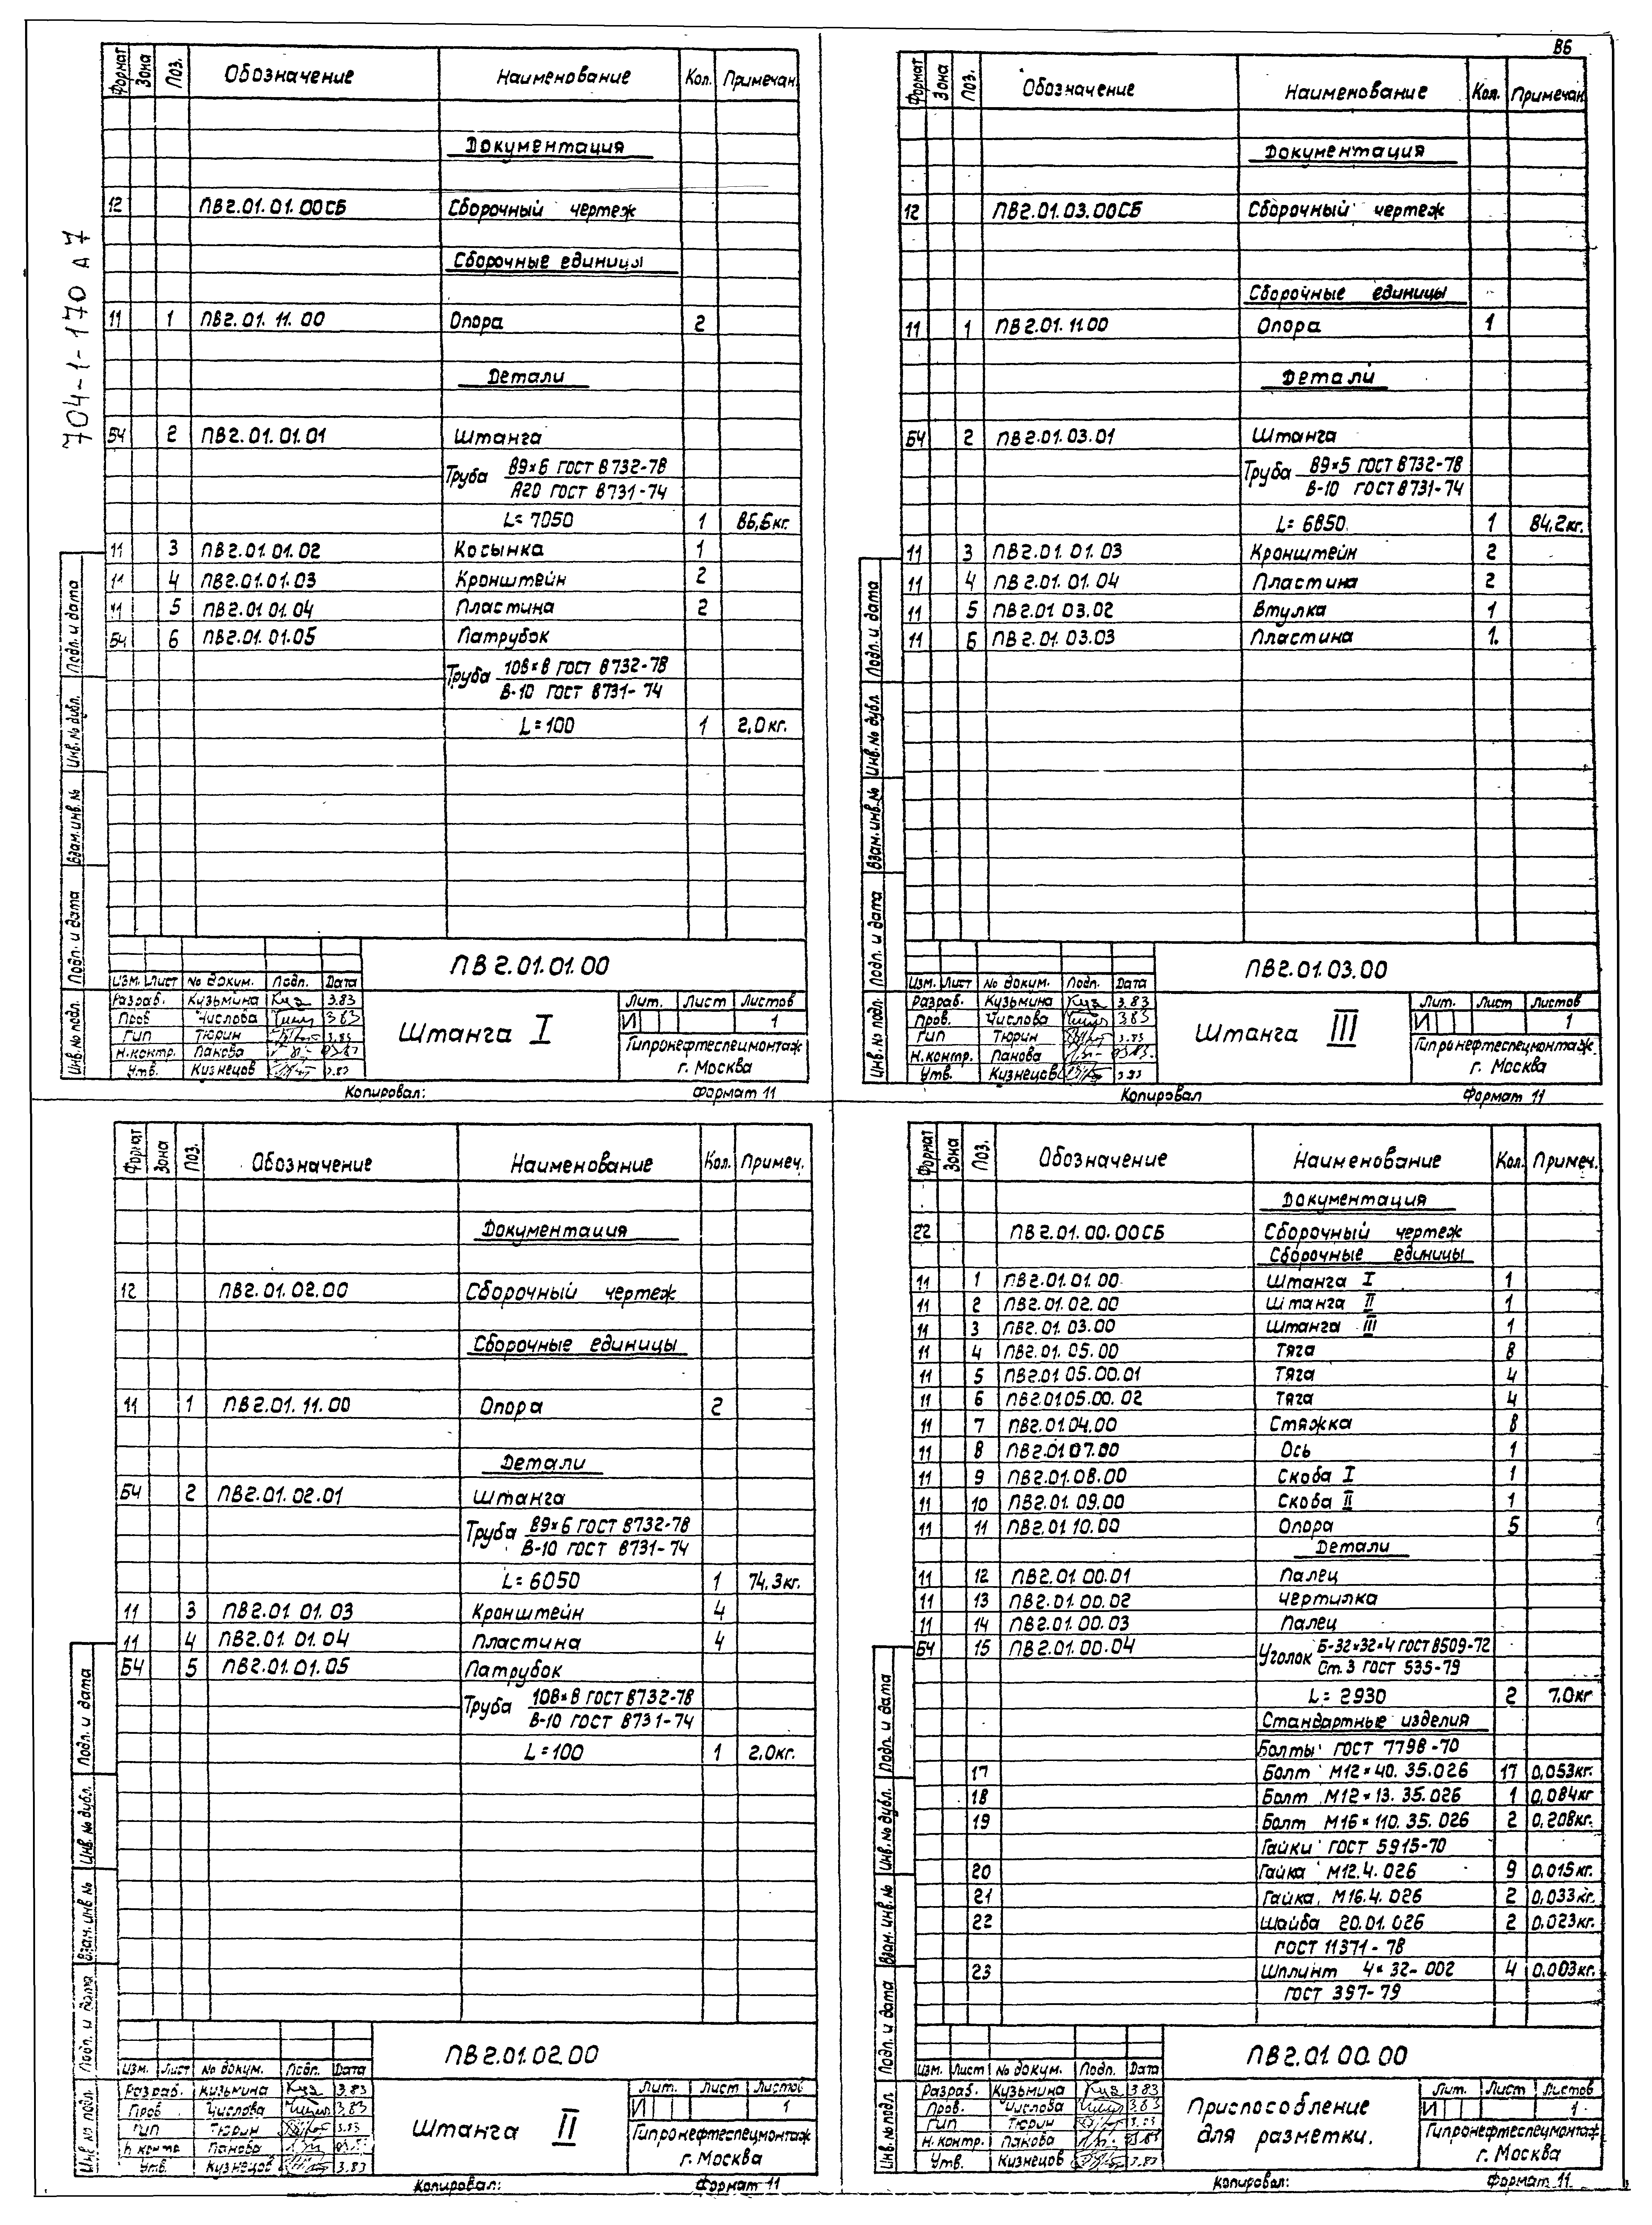 86
704-1-170 А7
Формат Зона Поз. Обозначение Наименование Кол. Примечан.
Документация
12 ПВ2.01.01.00СБ Сборочный чертеж
Сборочные единицы
11 1 ПВ2.01.11.00 Опора 2
Детали
БЧ 2 ПВ2.01.01.01 Штанга
Труба 89×6 ГОСТ 8732-78
А20 ГОСТ 8731-74
L=7050 1 86,6кг.
11 3 ПВ2.01.01.02 Косынка 1
11 4 ПВ2.01.01.03 Кронштейн 2
11 5 ПВ2.01 01.04 Пластина 2
БЧ 6 ПВ2.01.01.05 Патрубок
Труба 108×8 ГОСТ 8732-78
В-10 ГОСТ 8731-74
L=100 1 2,0кг.
Инв.№ подл. Подп. и дата Взам.инв.№ Инв.№ дубл. Подп. и дата
ПВ2.01.01.00
Изм. Лист № докум. Подп. Дата
Разраб. Кузьмина 3.83
Пров Числова 3.83
ГИП Тюрин 3.83
Н.контр. Панова
Утв. Кузнецов 3.83
Штанга I
Лит. Лист Листов
И 1
Гипронефтеспецмонтаж
г. Москва
Копировал: Формат 11
Формат Зона Поз. Обозначение Наименование Кол. Примечан
Документация
12 ПВ2.01.03.00СБ Сборочный чертеж
Сборочные единицы
11 1 ПВ2.01.1100 Опора 1
Детали
БЧ 2 ПВ2.01.03.01 Штанга
Труба 89×5 ГОСТ 8732-78
В-10 ГОСТ 8731-74
L=6850. 1 84,2кг.
11 3 ПВ2.01 01.03 Кронштейн 2
11 4 ПВ2.01 01.04 Пластина 2
11 5 ПВ2.01 03.02 Втулка 1
11 6 ПВ2.01.03.03 Пластина 1.
Инв.№ подл. Подп. и дата Взам.инв.№ Инв.№ дубл. Подп. и дата
ПВ2.01.03.00
Изм. Лист № докум. Подп. Дата
Разраб. Кузьмина 3.83
Пров. Числова 3.83
ГИП Тюрин 3.83
Н.контр. Панова 03.83.
Утв. Кузнецов 3.83
Штанга III
Лит. Лист Листов
И 1
Гипронефтеспецмонтаж
г. Москва
Копировал Формат 11
Формат Зона Поз. Обозначение Наименование Кол. Примеч.
Документация
12 ПВ2.01.02.00 Сборочный чертеж
Сборочные единицы
11 1 ПВ2.01.11.00 Опора 2
Детали
БЧ 2 ПВ2.01.02.01 Штанга
Труба 89×6 ГОСТ 8732-78
В-10 ГОСТ 8731-74
L=6050 1 74.3кг.
11 3 ПВ2.01 01.03 Кронштейн 4
11 4 ПВ2.01.01.04 Пластина 4
БЧ 5 ПВ2.01.01.05 Патрубок
Труба 108×8 ГОСТ 8732-78
В-10 ГОСТ 8731-74
L=100 1 2.0кг.
Инв № подл. Подп. и дата Взам.инв № Инв.№ дубл. Подп. и дата
ПВ2.01.02.00
Изм. Лист № докум. Подп. Дата
Разраб. Кузьмина 3.83
Пров Числова 3.83
ГИП Тюрин 3.83
Н контр Панова
Утв. Кузнецов 3.83
Штанга II
Лит. Лист Листов
И 1
Гипронефтеспецмонтаж
г. Москва
Копировал: Формат 11
Формат Зона Поз. Обозначение Наименование Кол. Примеч.
Документация
22 ПВ2.01.00.00СБ Сборочный чертеж
Сборочные единицы
11 1 ПВ2.01.01.00 Штанга I 1
11 2 ПВ2.01.02.00 Штанга II 1
11 3 ПВ2.01.03.00 Штанга III 1
11 4 ПВ2.01.05.00 Тяга 8
11 5 ПВ2.01 05.00.01 Тяга 4
11 6 ПВ2.01 05.00.02 Тяга 4
11 7 ПВ2.01.04.00 Стяжка 8
11 8 ПВ2.01 07.00 Ось 1
11 9 ПВ2.01.08.00 Скоба I 1
11 10 ПВ2.01.09.00 Скоба II 1
11 11 ПВ2.01 10.00 Опора 5
Детали
11 12 ПВ2.01.00.01 Палец
11 13 ПВ2.01.00.02 Чертилка
11 14 ПВ2.01.00.03 Палец
БЧ 15 ПВ2.01.00.04 Уголок Б-32×32×4 ГОСТ 8509-72
Ст.3 ГОСТ 535-79
L=2930 2 7.0кг
Стандартные изделия
Болты ГОСТ 7798-70
17 Болт М12×40.35.026 17 0,053кг.
18 Болт М12×13.35.026 1 0,084кг
19 Болт М16×110.35.026 2 0,208кг.
Гайки ГОСТ 5915-70
20 Гайка М12.4.026 9 0,015кг.
21 Гайка М16.4.026 2 0,033кг.
22 Шайба 20.01.026 2 0,023кг.
ГОСТ 11371-78
23 Шплинт 4×32-002 4 0,003кг.
ГОСТ 397-79
Инв.№ подл. Подп. и дата Взам.инв.№ Инв.№ дубл. Подп. и дата
ПВ2.01.00.00
Изм. Лист № докум. Подп. Дата
Разраб. Кузьмина 3.83
Пров. Числова 3.83
ГИП Тюрин 3.83
Н.контр. Панова 03.83
Утв. Кузнецов 3.83
Приспособление
для разметки.
Лит. Лист Листов
И 1
Гипронефтеспецмонтаж
г. Москва
Копировал: Формат 11